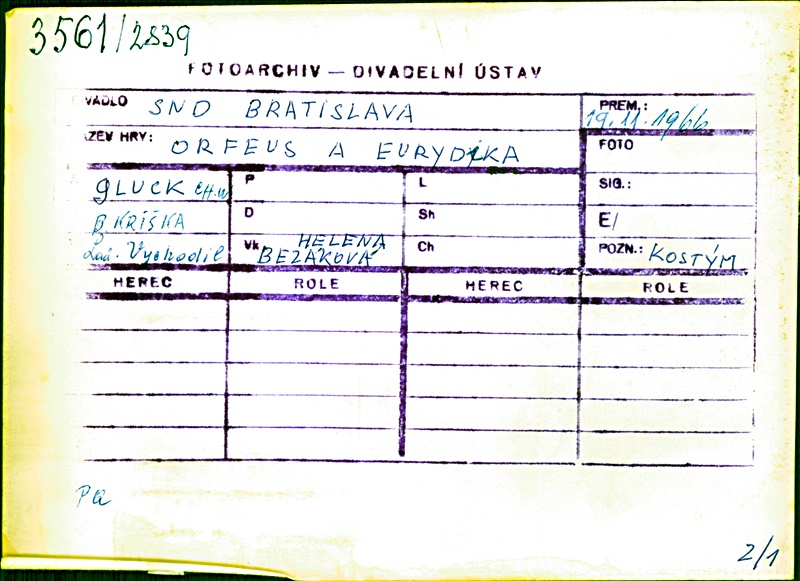 3561/2839
FOTOARCHIV — DIVADELNÍ ÚSTAV
VADLO SND BRATISLAVA
PREM.: 19.11.1966
ZEV HRY: ORFEUS A EURYDIKA
FOTO
GLUCK CH.W
P
L
SIG.:
B KRIŠKA
D
Sh
E/
Lad. Vychodil
Vk HELENA BEZÁKOVÁ
Ch
POZN.: KOSTÝM
HEREC ROLE HEREC ROLE
Pa
2/1